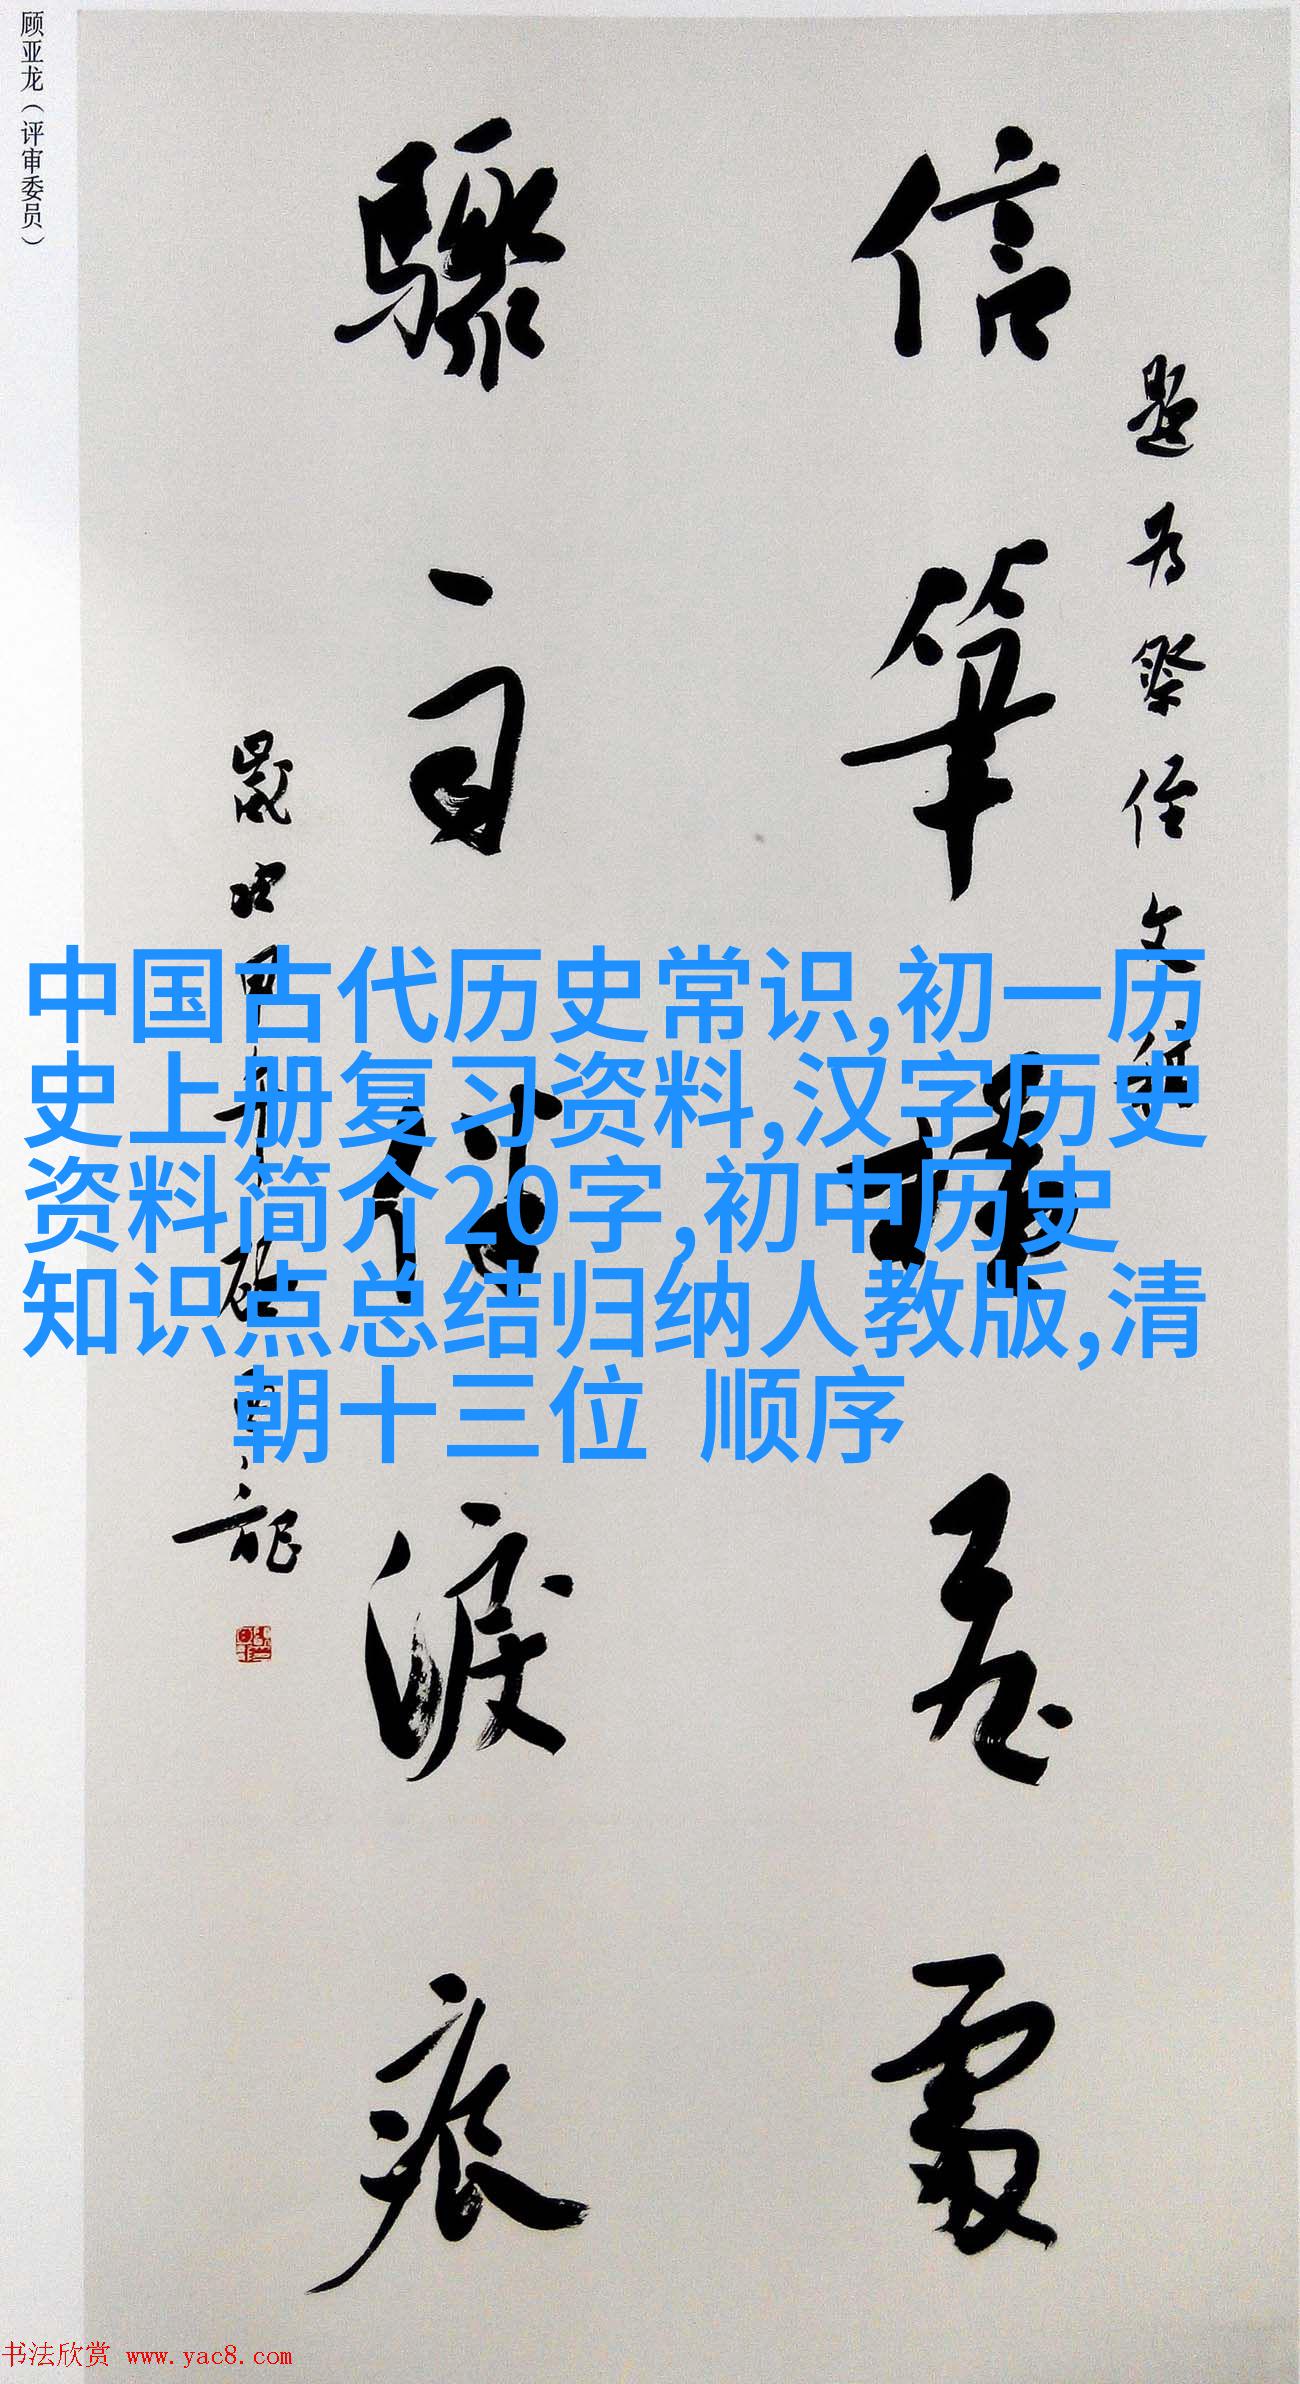 顾亚龙（评审委员）
题为祭侄文稿
信筆
處
驟
淚痕
歲次甲午顧亞龍
中国古代历史常识,初一历
史上册复习资料,汉字历史
资料简介20字,初中历史
知识点总结归纳人教版,清
朝十三位 顺序
书法欣赏 www.yac8.com